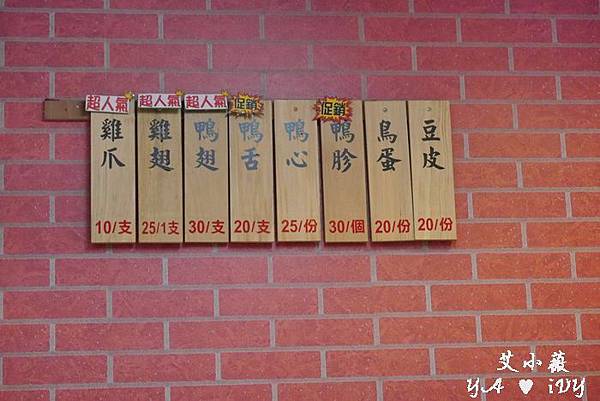 超人氣
雞爪
10/支
超人氣
雞翅
25/1支
超人氣
鴨翅
30/支
促銷
鴨舌
20/支
鴨心
25/份
促銷
鴨胗
30/個
鳥蛋
20/份
豆皮
20/份
艾小薇
YA ♥ iVY